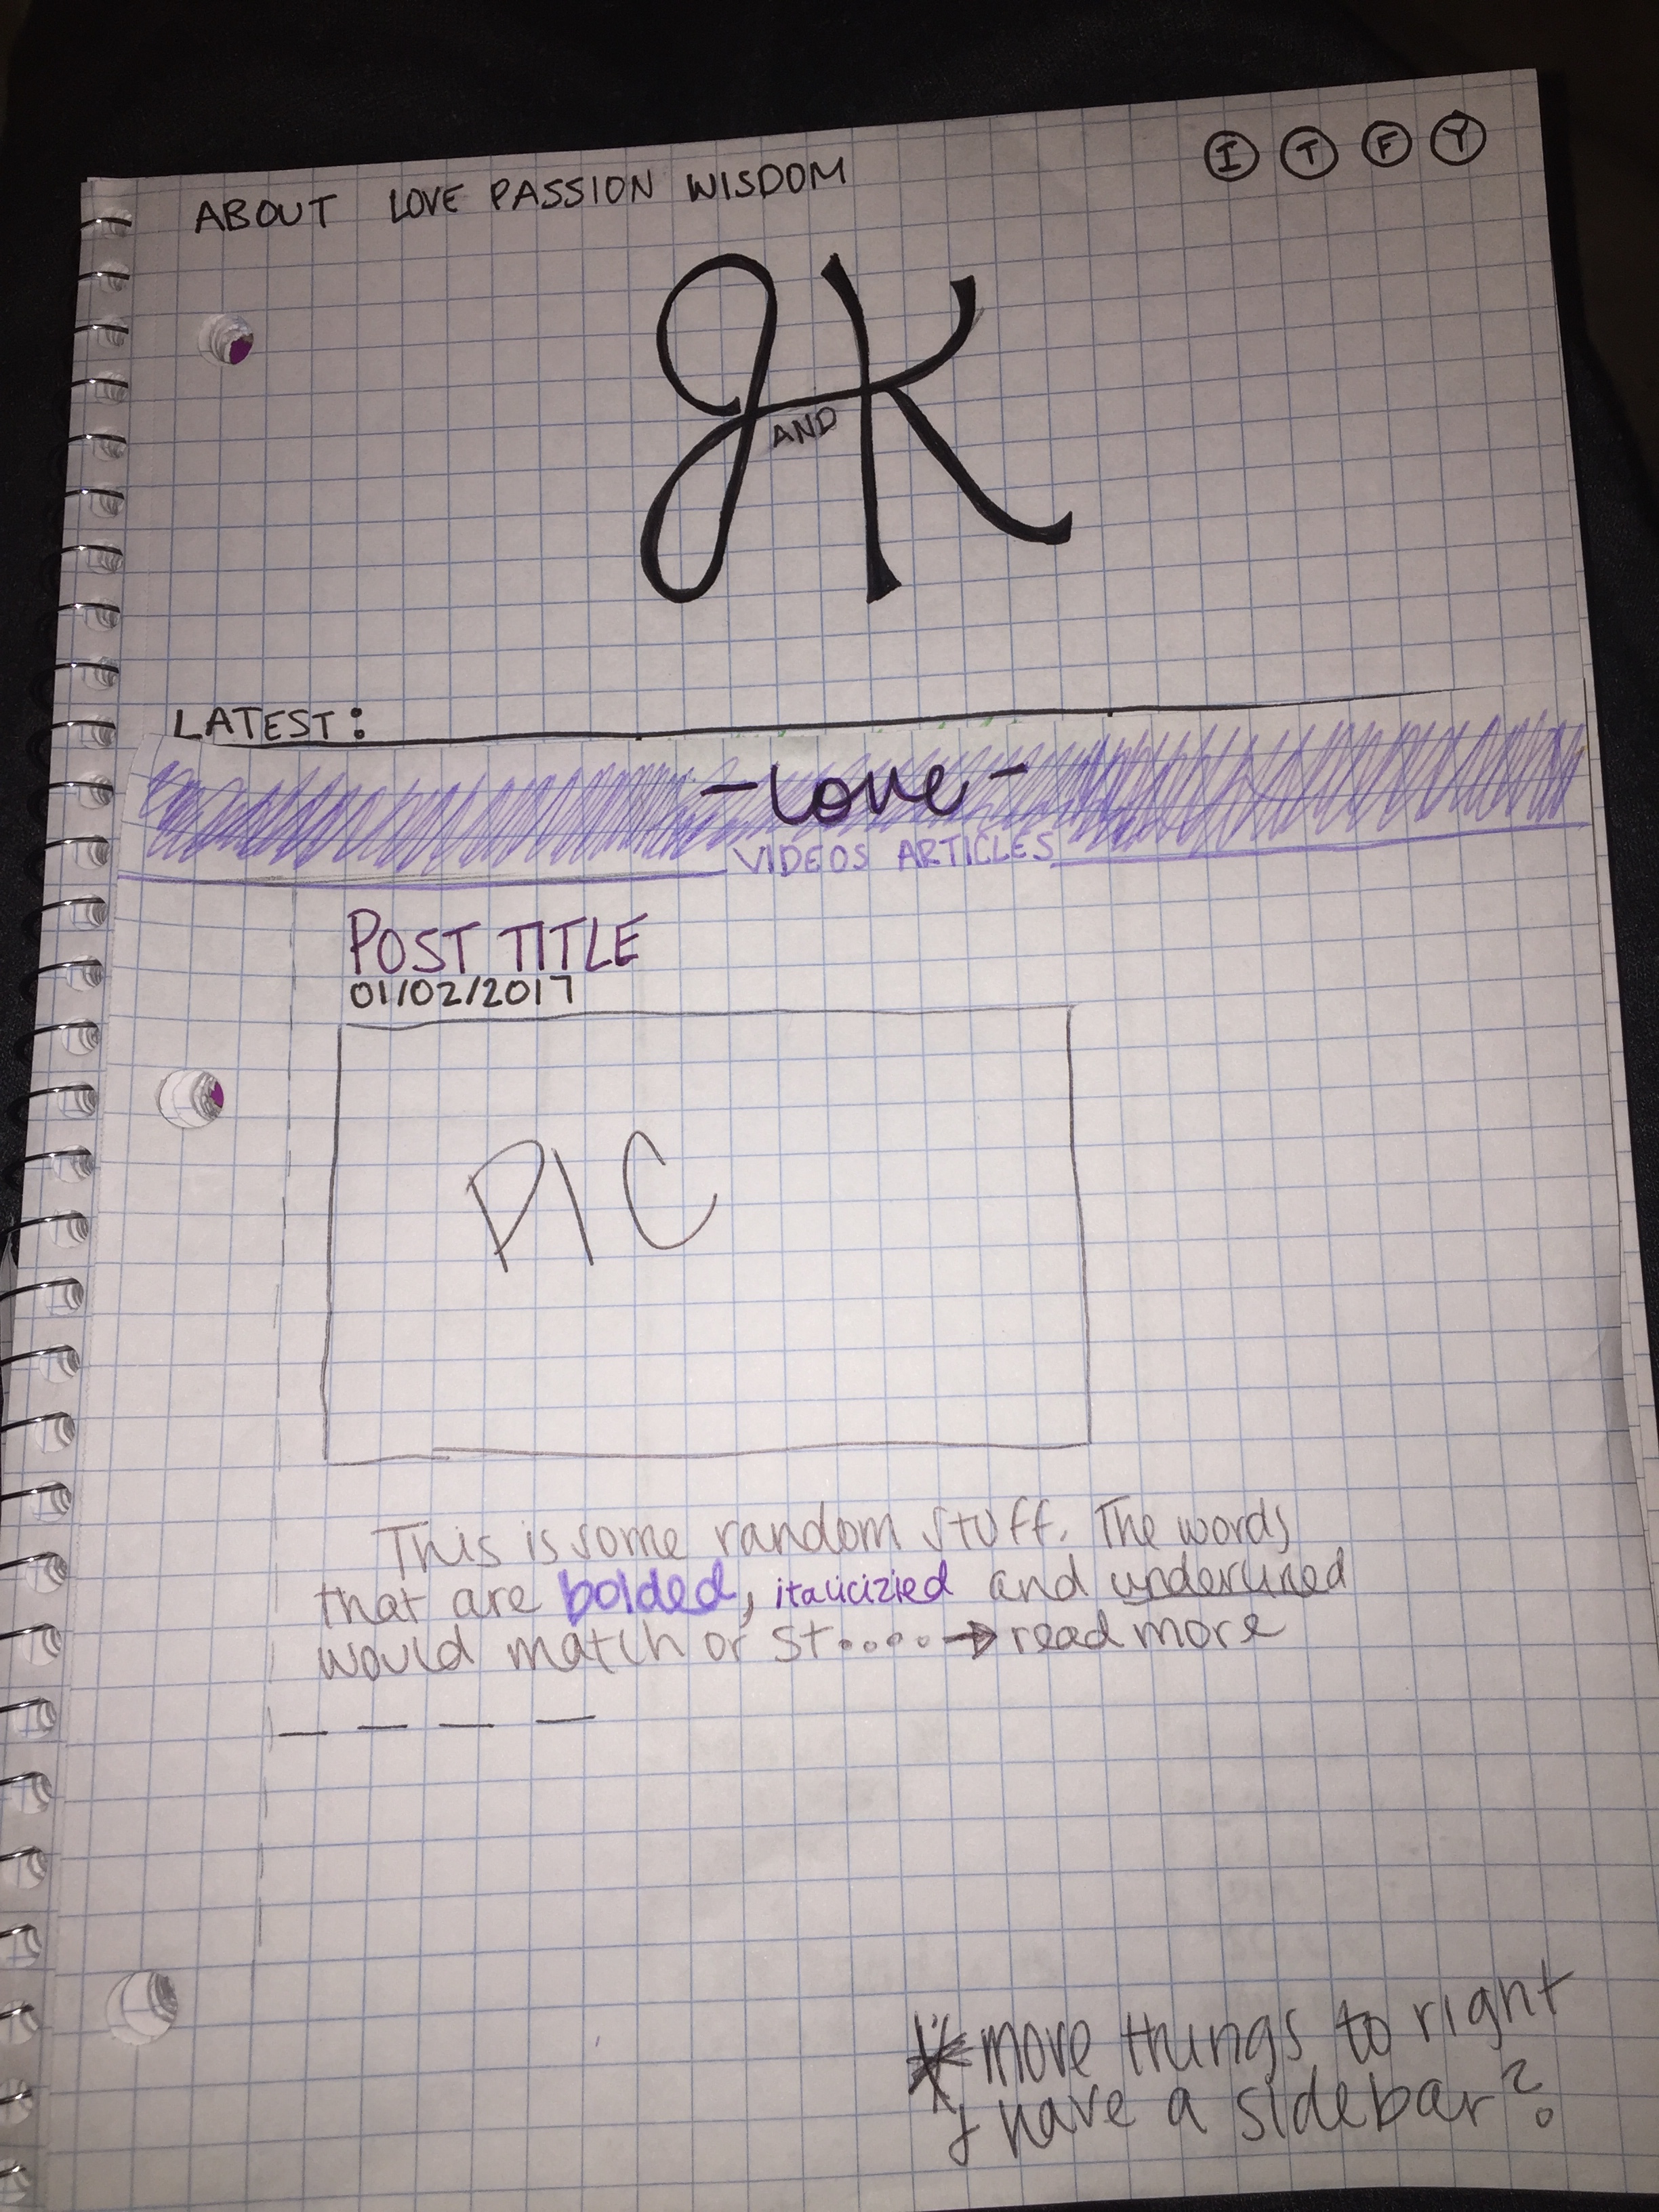 ABOUT LOVE PASSION WISDOM
I T F Y
J AND K
LATEST:
-love-
VIDEOS ARTICLES
POST TITLE
01/02/2017
PIC
This is some random stuff. The words
that are bolded, italicizied and underlined
would match or st.... → read more
* more things to right
& have a sidebar?